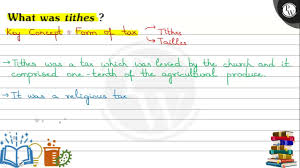 What was tithes ?
Key Concept = Form of tax → Tithes
→ Tailles
→ Tithes was a tax which was levied by the church and it
comprised one-tenth of the agricultural produce.
→ It was a religious tax